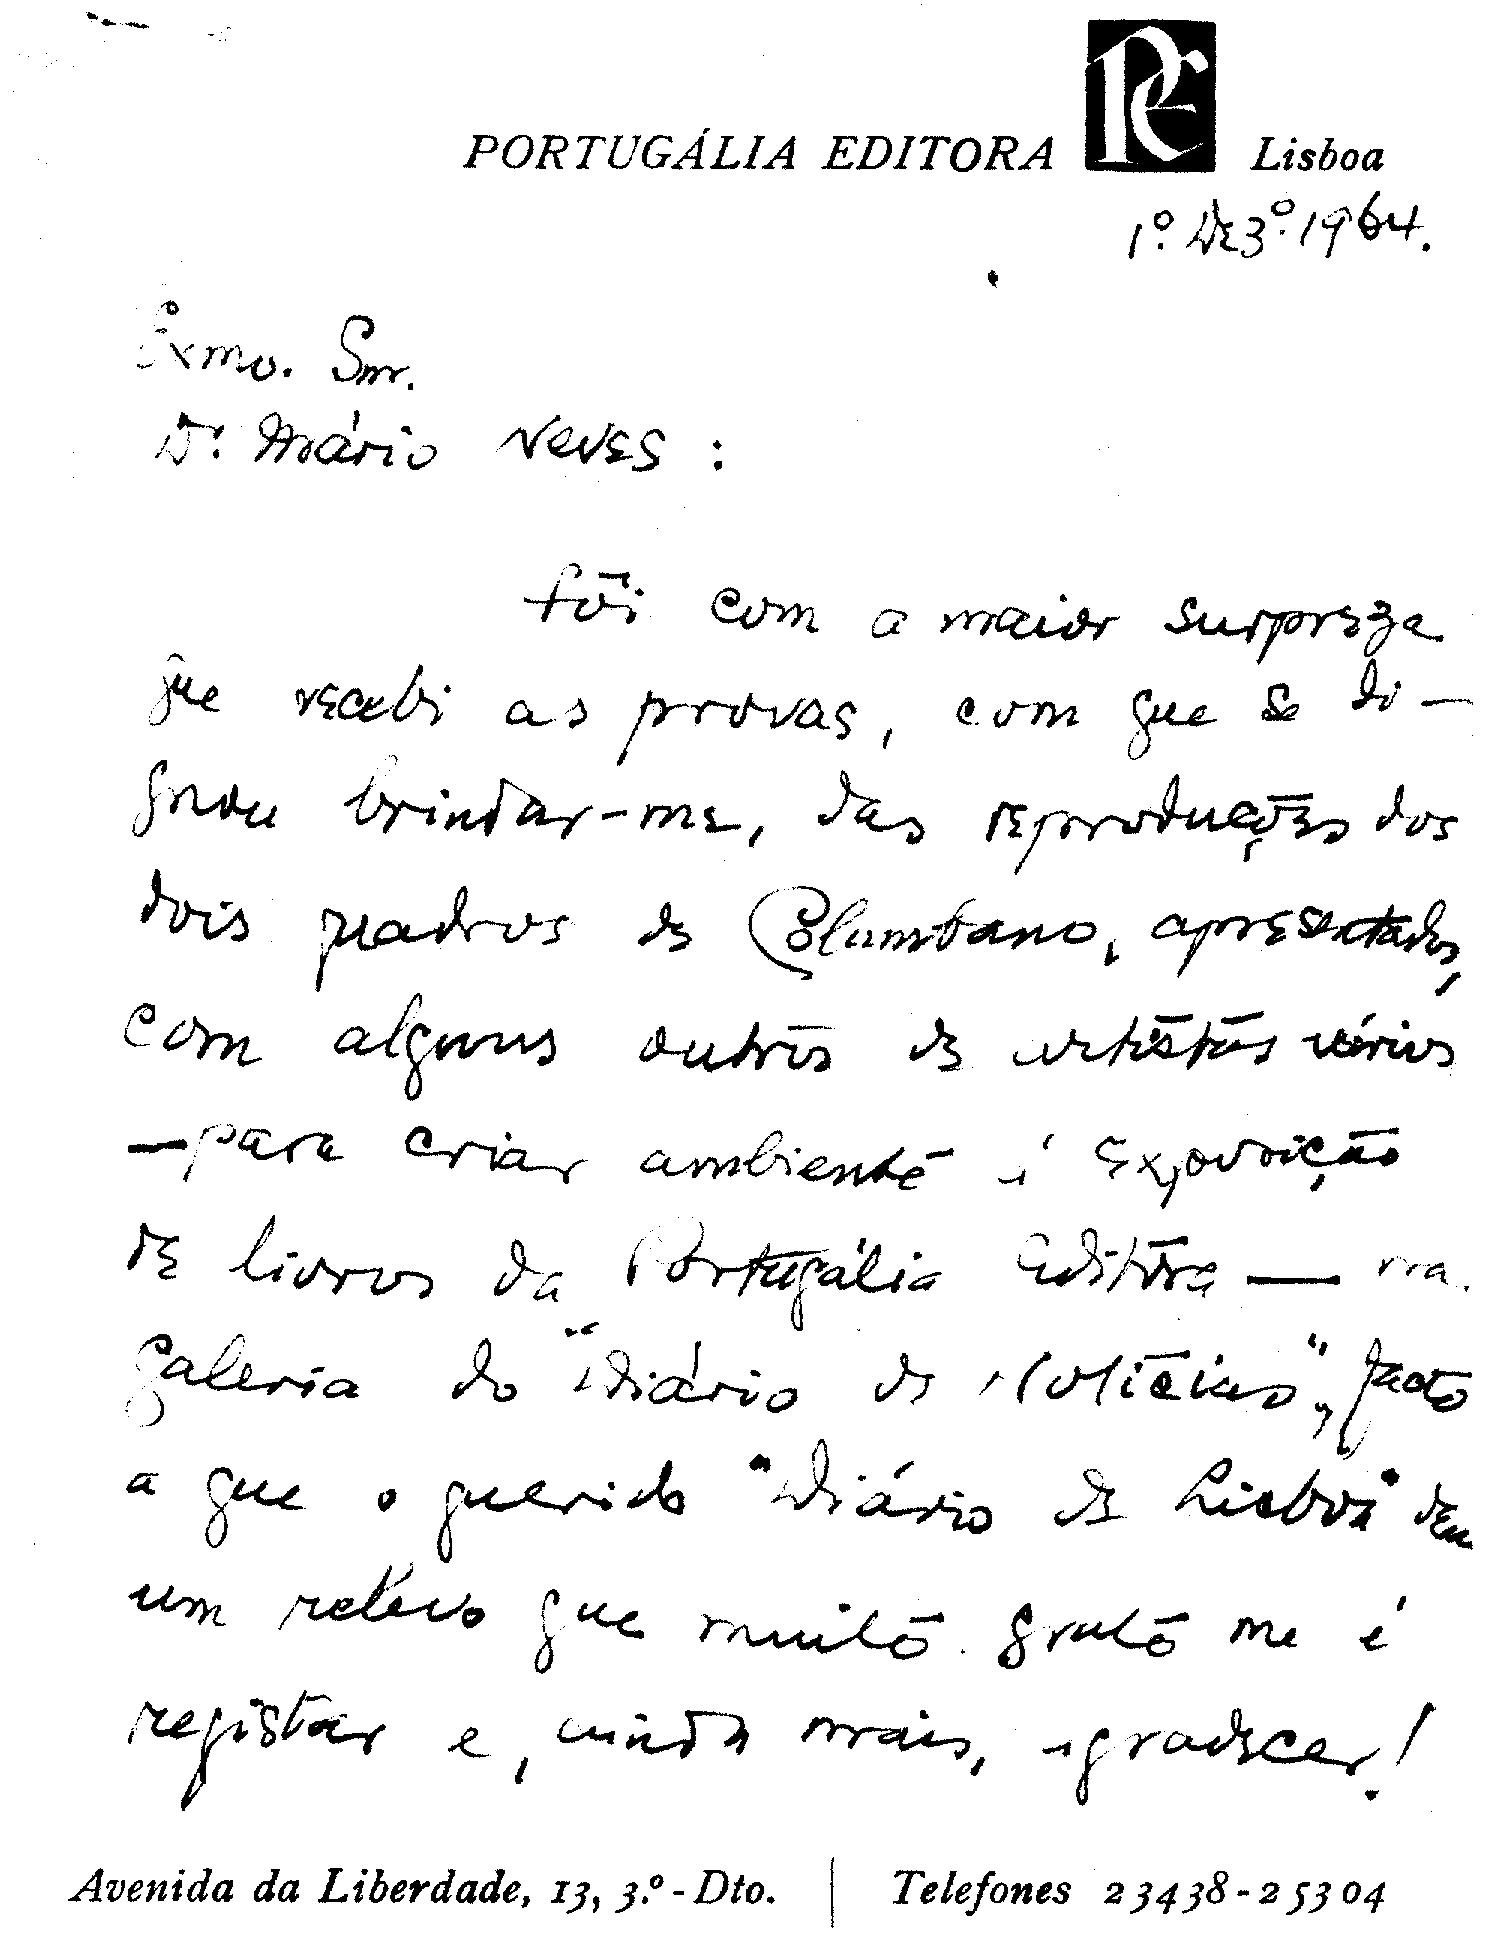 PORTUGÁLIA EDITORA PE Lisboa
1º. Dezº. 1964.
Exmo. Snr.
Dr. Mário Neves :
Foi com a maior surpreza
que recebi as provas, com que se di-
gnou brindar-me, das reproduções dos
dois quadros de Columbano, apresentados,
com alguns outros de artistas vários
—para criar ambiente á exposição
de livros da Portugália Editora — na
galeria do "Diário de Notícias", facto
a que o querido "Diário de Lisboa" deu
um relevo que muito grato me é
registar e, ainda mais, agradecer!
Avenida da Liberdade, 13, 3.º - Dto. | Telefones 23438-25304